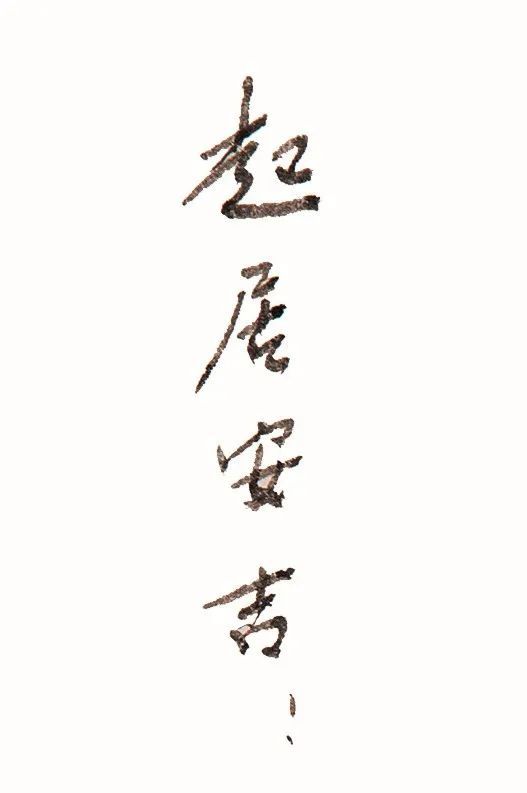 起居安吉！